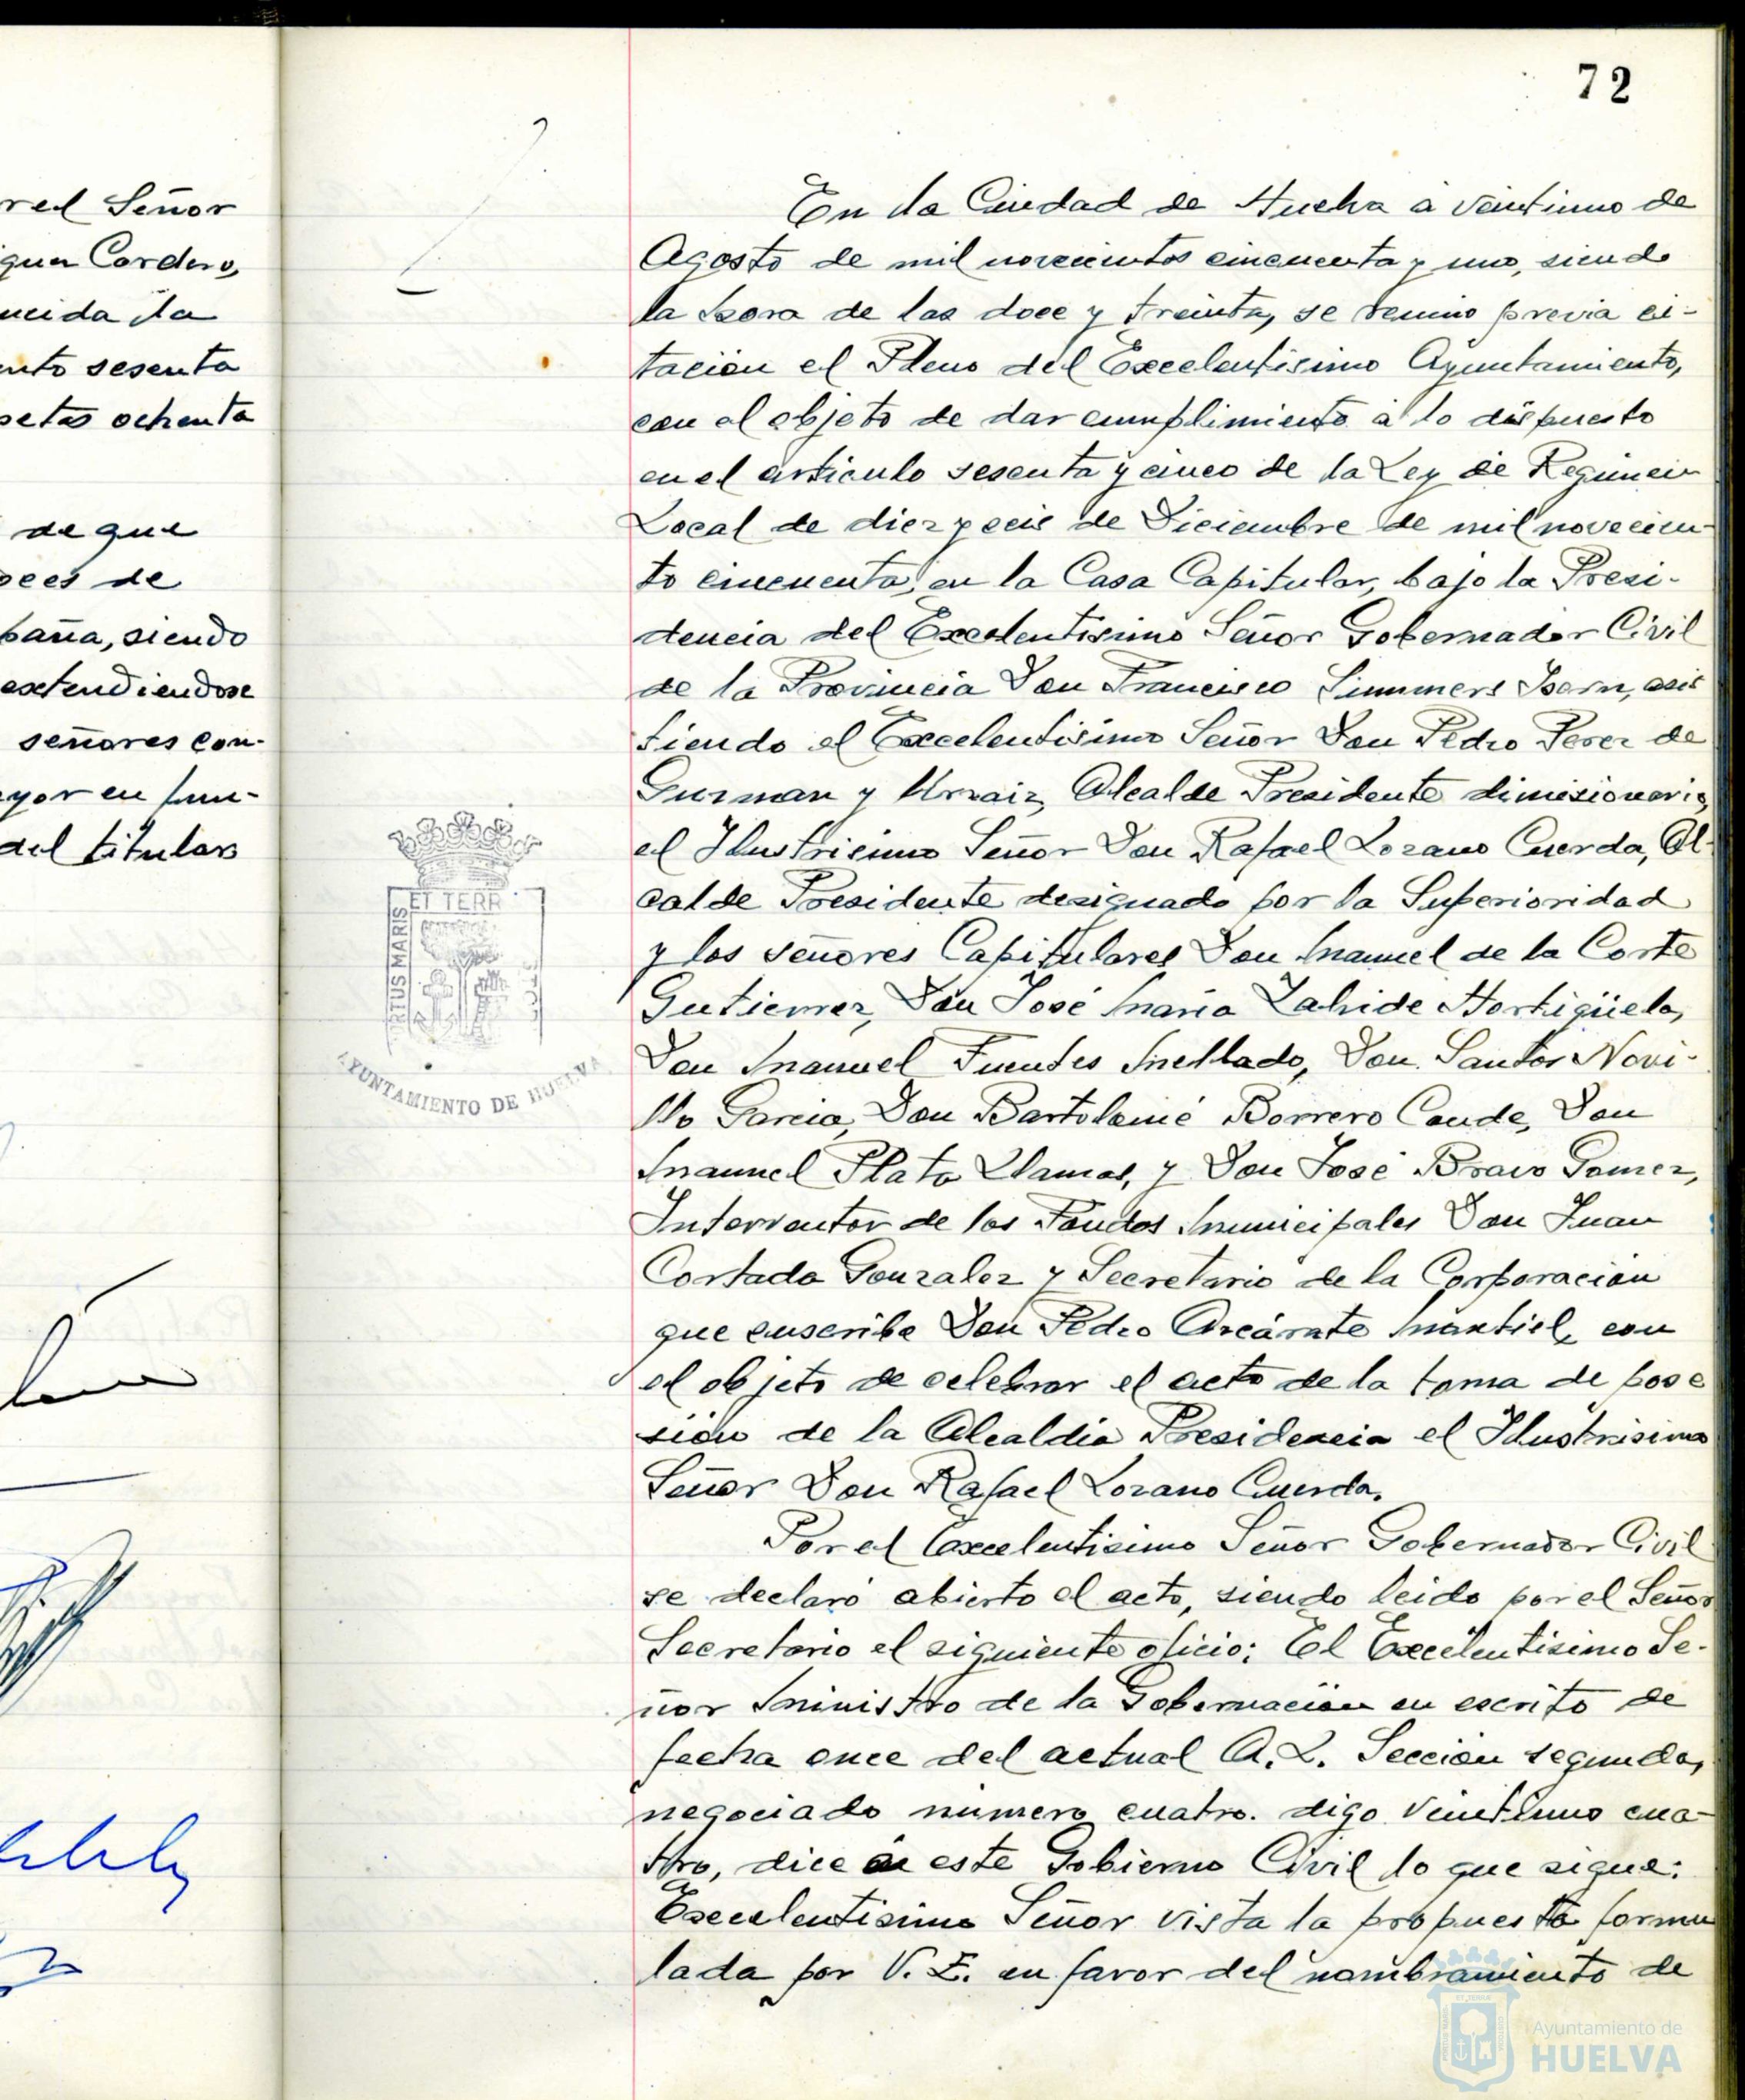 72
rel Señor
guez Cordero,
ucida la
nto sesenta
setas ochenta
de que
oces de
paña, siendo
extendiendose
señores con-
yor en fun-
del titular
En la Ciudad de Huelva a veintiuno de
Agosto de mil novecientos cincuenta y uno, siendo
la hora de las doce y treinta, se reunio previa ci-
tación el Pleno del Excelentisimo Ayuntamiento,
con el objeto de dar cumplimiento a lo dispuesto
en el articulo sesenta y cinco de la Ley de Regimen
Local de diez y seis de Diciembre de mil novecien-
to cincuenta, en la Casa Capitular, bajo la Presi-
dencia del Excelentisimo Señor Gobernador Civil
de la Provincia Don Francisco Summers Isern, asis
tiendo el Excelentisimo Señor Don Pedro Perez de
Guzman y Urzaiz, Alcalde Presidente dimisionario,
el Ilustrisimo Señor Don Rafael Lozano Cuerda, Al-
calde Presidente designado por la Superioridad
y los señores Capitulares Don Manuel de la Corte
Gutierrez, Don José Maria Zalvide Hortigüela,
Don Manuel Fuentes Mellado, Don Santos Novi-
llo Garcia, Don Bartolomé Borrero Conde, Don
Manuel Plata Llamas, y Don José Bravo Gomez,
Interventor de los Fondos Municipales Don Juan
Cortada Gonzalez y Secretario de la Corporación
que suscribe Don Pedro Arcárate Montiel, con
el objeto de celebrar el acto de la toma de pose
sión de la Alcaldia Presidencia el Ilustrisimo
Señor Don Rafael Lozano Cuerda.
Por el Excelentisimo Señor Gobernador Civil
se declaró abierto el acto, siendo leido por el Señor
Secretario el siguiente oficio: El Excelentisimo Se-
ñor Ministro de la Gobernación en escrito de
fecha once del actual A.L. Sección segunda,
negociado numero cuatro. digo veintiuno cua-
tro, dice a este Gobierno Civil lo que sigue:
Excelentisimo Señor vista la propuesta formu
lada por V.E. en favor del nombramiento de
ET TERR
RTUS MARIS
AYUNTAMIENTO DE HUELVA
Ayuntamiento de
HUELVA